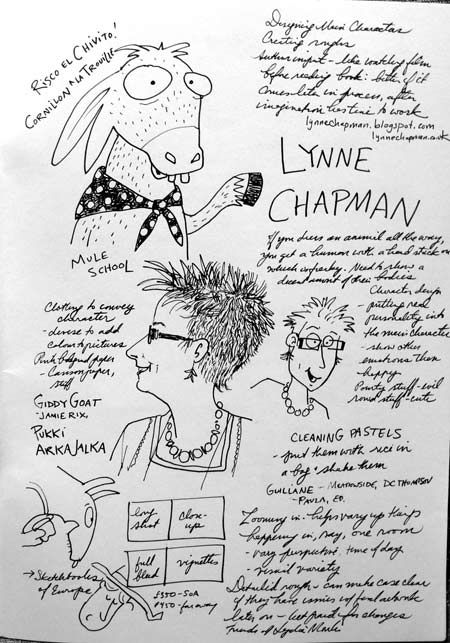 RISCO EL CHIVITO!
CORNILLON LA TROUILLE
MULE
SCHOOL
Designing Main Characters
Creating roughs
Author input - like watching film
before reading book: better if it
comes late in process, after
imagination has time to work
lynnechapman.blogspot.com
lynnechapman.co.uk
LYNNE
CHAPMAN
If you dress an animal all the way,
you get a human with a head stuck on
which is freaky. Need to show a
decent amount of their bodies
Clothing to convey
character
- devise to add
colour to pictures
Pink background paper
- Canson paper,
stiff
GIDDY GOAT
-JAMIE RIX,
PUKKI
ARKAJALKA
Character design
- putting real
personality into
the main character
- show other
emotions than
happy
Pointy stuff - evil
round stuff - cute
CLEANING PASTELS
- put them with rice in
a bag & shake them
GULLANE - MEADOWSIDE, DC THOMPSON
- PAULA, ED.
long
shot
close-
up
full
bleed
vignettes
→ Sketchbooks
of Europe
£350 - SOA
£450 - faraway
Zooming in - helps vary up things
happening in, say, one room
- vary perspective, time of day
- visual variety
Detailed rough - can make case clear
if they have issues w/ final artwork
later on -